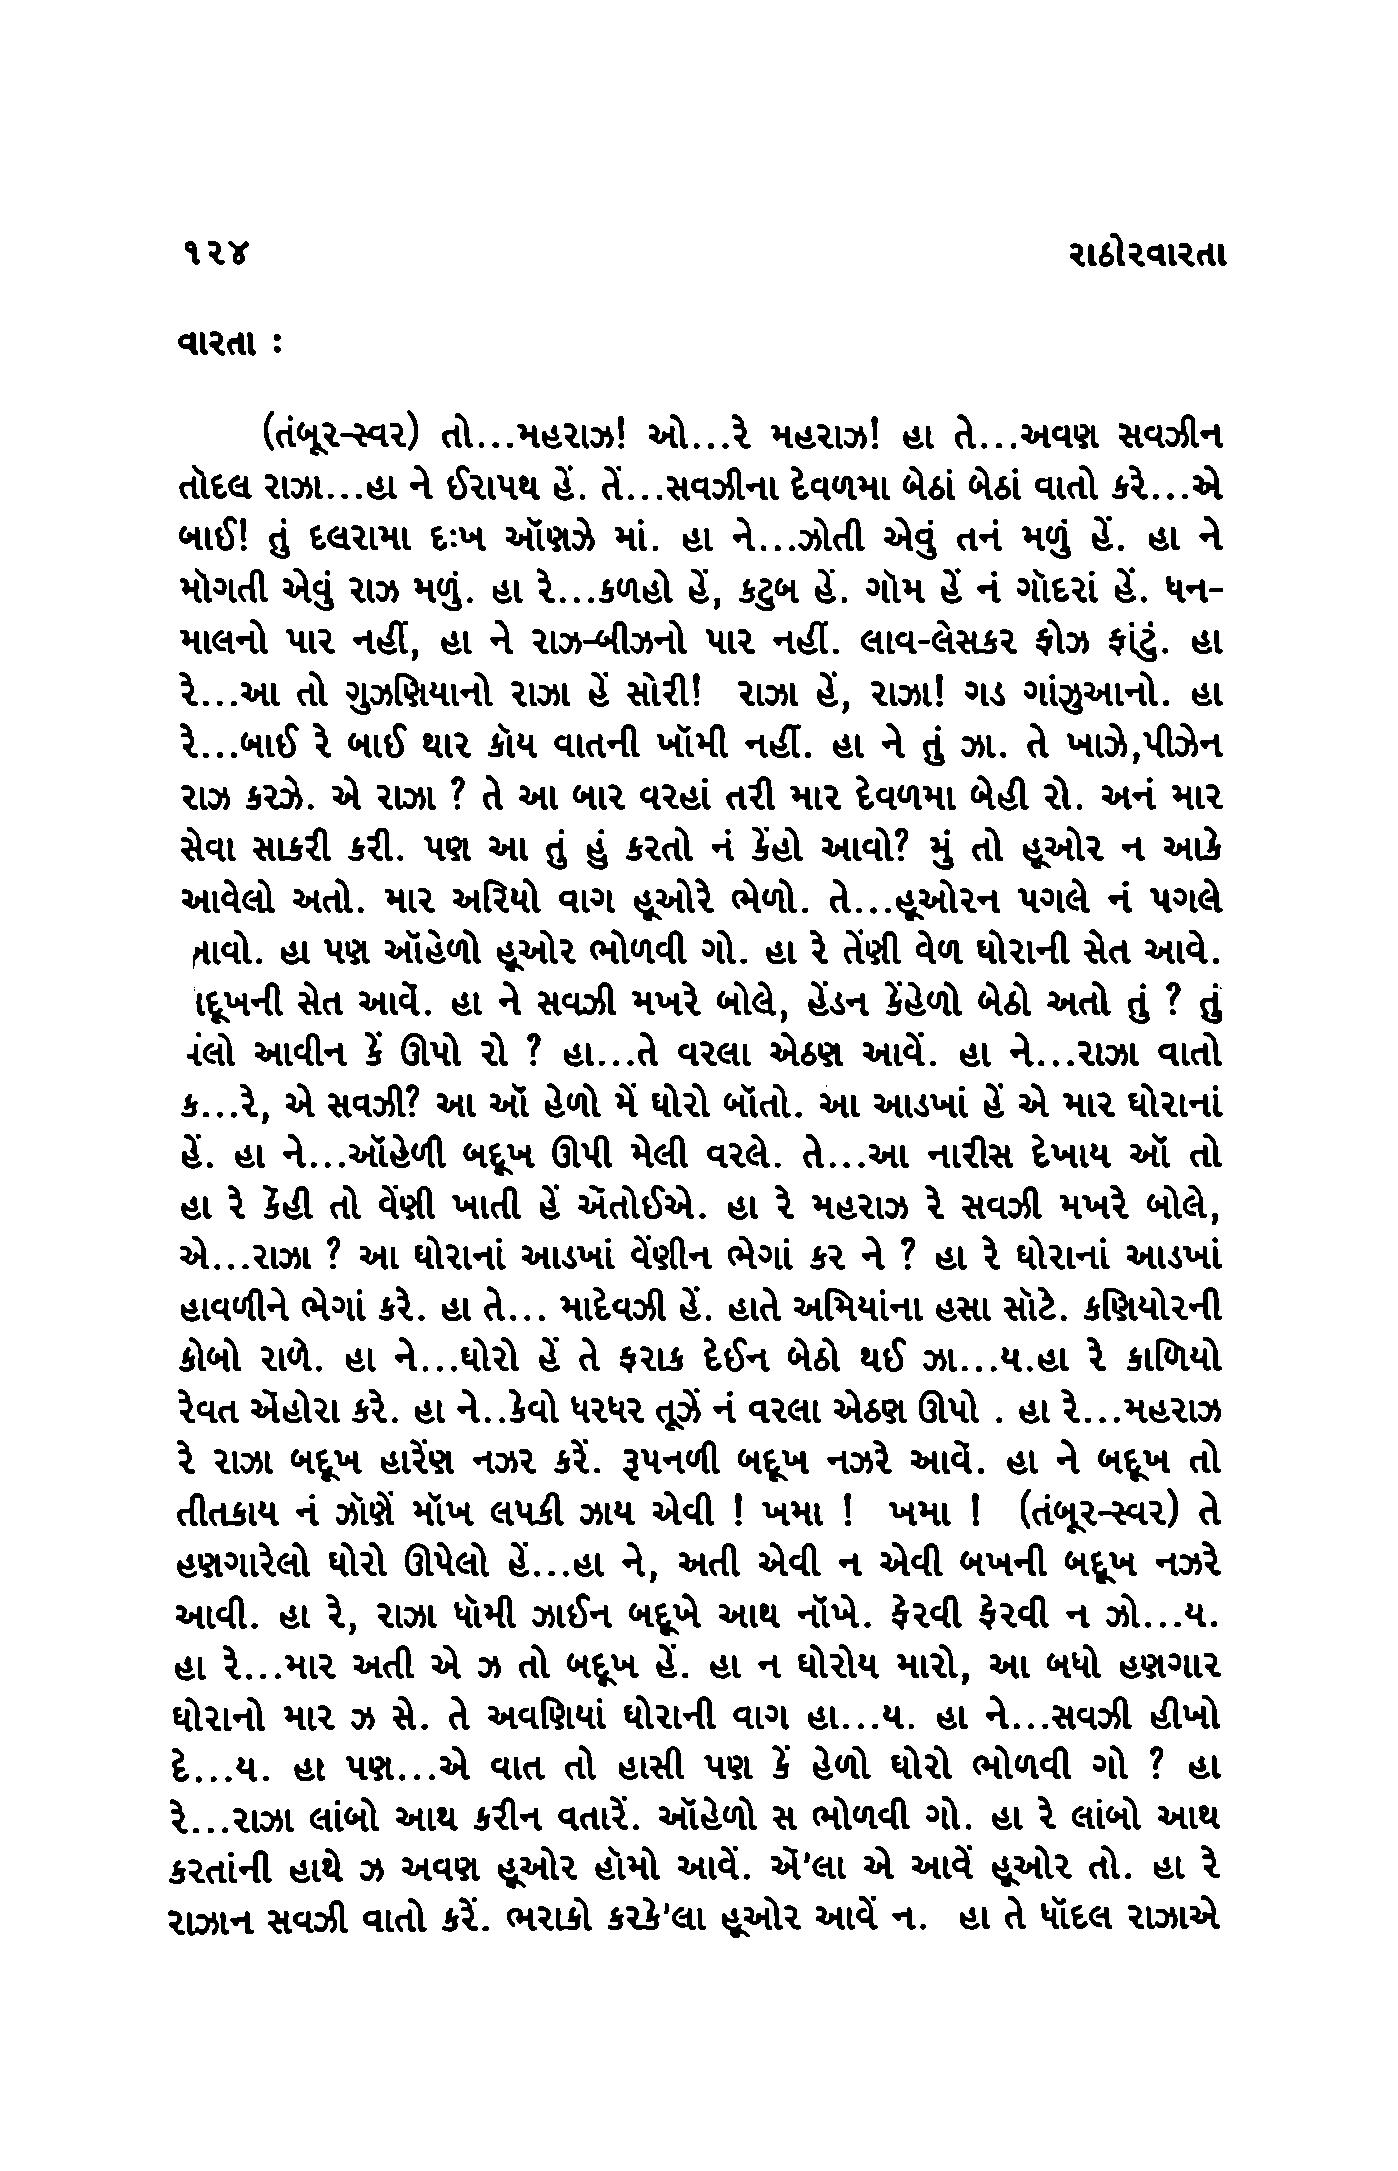 ૧૨૪ રાઠોરવારતા
વારતા :
(તંબૂર-સ્વર) તો...મહરાઝ! ઓ...રે મહરાઝ! હા તે...અવણ સવઝીન
તૉદલ રાઝા...હા ને ઈરાપથ હેં. તેં...સવઝીના દેવળમા બેઠાં બેઠાં વાતો કરે...એ
બાઈ! તું દલરામા દઃખ ઑણઝે માં. હા ને...ઝોતી એવું તનં મળું હેં. હા ને
મૉગતી એવું રાઝ મળું. હા રે...કળહો હેં, કટુબ હેં. ગૉમ હેં નં ગૉદરાં હેં. ધન-
માલનો પાર નહીં, હા ને રાઝ-બીઝનો પાર નહીં. લાવ-લેસકર ફોઝ ફાંટું. હા
રે...આ તો ગુઝણિયાનો રાઝા હેં સોરી! રાઝા હેં, રાઝા! ગડ ગાંઝુઆનો. હા
રે...બાઈ રે બાઈ થાર કૉય વાતની ખૉમી નહીં. હા ને તું ઝા. તે ખાઝે,પીઝેન
રાઝ કરઝે. એ રાઝા ? તે આ બાર વરહાં તરી માર દેવળમા બેહી રો. અનં માર
સેવા સાકરી કરી. પણ આ તું હું કરતો નં કેંહો આવો? મું તો હૂઓર ન આકે
આવેલો અતો. માર અરિયો વાગ હૂઓરે ભેળો. તે...હૂઓરન પગલે નં પગલે
આવો. હા પણ ઑહેળો હૂઓર ભોળવી ગો. હા રે તેંણી વેળ ઘોરાની સેત આવે.
દૂખની સેત આવેં. હા ને સવઝી મખરે બોલે, હેંડન કેંહેળો બેઠો અતો તું ? તું
લો આવીન કેં ઊપો રો ? હા...તે વરલા એઠણ આવેં. હા ને...રાઝા વાતો
ક...રે, એ સવઝી? આ ઑ હેળો મેં ઘોરો બૉતો. આ આડખાં હેં એ માર ઘોરાનાં
હેં. હા ને...ઑહેળી બદૂખ ઊપી મેલી વરલે. તે...આ નારીસ દેખાય ઑ તો
હા રે કેંહી તો વેંણી ખાતી હેં ઍંતોઈએ. હા રે મહરાઝ રે સવઝી મખરે બોલે,
એ...રાઝા ? આ ઘોરાનાં આડખાં વેંણીન ભેગાં કર ને ? હા રે ઘોરાનાં આડખાં
હાવળીને ભેગાં કરે. હા તે... માદેવઝી હેં. હાતે અમિયાંના હસા સૉટે. કણિયોરની
કોબો રાળે. હા ને...ઘોરો હેં તે ફરાક દેઈન બેઠો થઈ ઝા...ય.હા રે કાળિયો
રેવત ઍંહોરા કરે. હા ને..કેવો ધરધર તૂઝેં નં વરલા એઠણ ઊપો . હા રે...મહરાઝ
રે રાઝા બદૂખ હારેંણ નઝર કરેં. રૂપનળી બદૂખ નઝરે આવેં. હા ને બદૂખ તો
તીતકાય નં ઝૉણેં મૉખ લપકી ઝાય એવી ! ખમા ! ખમા ! (તંબૂર-સ્વર) તે
હણગારેલો ઘોરો ઊપેલો હેં...હા ને, અતી એવી ન એવી બખની બદૂખ નઝરે
આવી. હા રે, રાઝા ધૉમી ઝાઈન બદૂખે આથ નૉખે. ફેરવી ફેરવી ન ઝો...ય.
હા રે...માર અતી એ ઝ તો બદૂખ હેં. હા ન ઘોરોય મારો, આ બધો હણગાર
ઘોરાનો માર ઝ સે. તે અવણિયાં ઘોરાની વાગ હા...ય. હા ને...સવઝી હીખો
દે...ય. હા પણ...એ વાત તો હાસી પણ કેં હેળો ઘોરો ભોળવી ગો ? હા
રે...રાઝા લાંબો આથ કરીન વતારેં. ઑહેળો સ ભોળવી ગો. હા રે લાંબો આથ
કરતાંની હાથે ઝ અવણ હૂઓર હૉમો આવેં. ઍં'લા એ આવેં હૂઓર તો. હા રે
રાઝાન સવઝી વાતો કરેં. ભરાકો કરકે'લા હૂઓર આવેં ન. હા તે ધૉદલ રાઝાએ